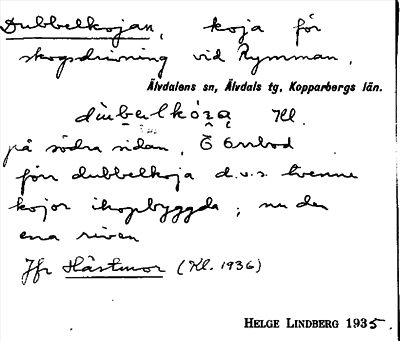 Dubbelkojan, koja för
skogsdrivning vid Rymman,
Älvdalens sn, Älvdals tg, Kopparbergs län.
Kl.
på södra sidan, Ö Örnbod
förr dubbelkoja d.v.s. tvenne
kojor ihopbyggda; nu den
ena riven
Jfr Hästmor (Kl. 1936)
HELGE LINDBERG 1935.